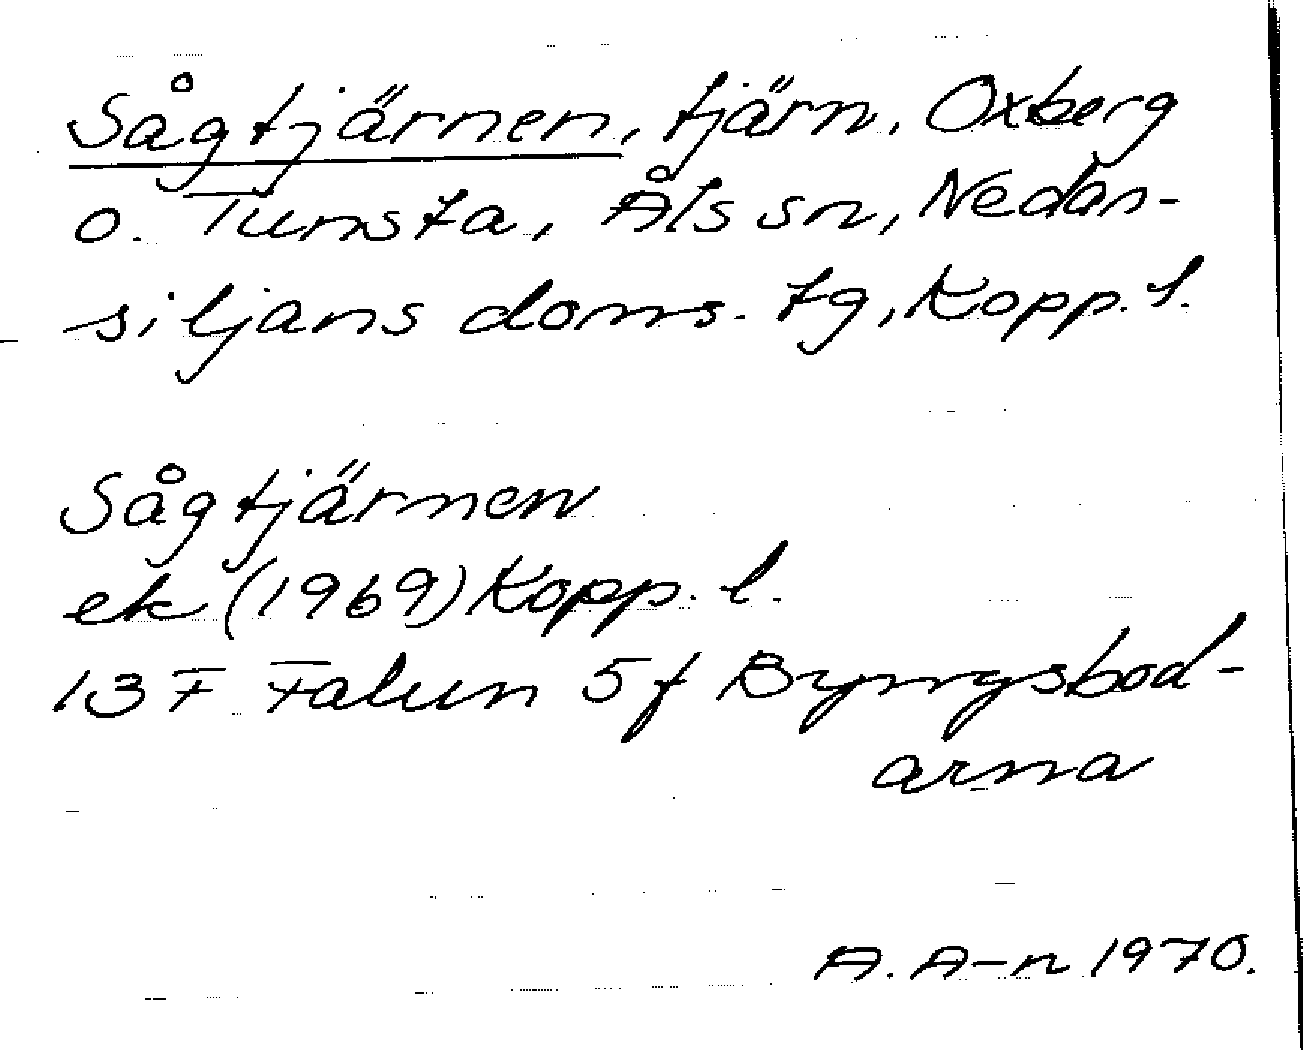 Sågtjärnen, tjärn, Oxberg
o. Tunsta, Åls sn, Nedan-
siljans doms. tg, Kopp. l.
Sågtjärnen
ek (1969) Kopp. l.
13 F Falun 5f Byngsbod-
arna
A. A-n 1970.